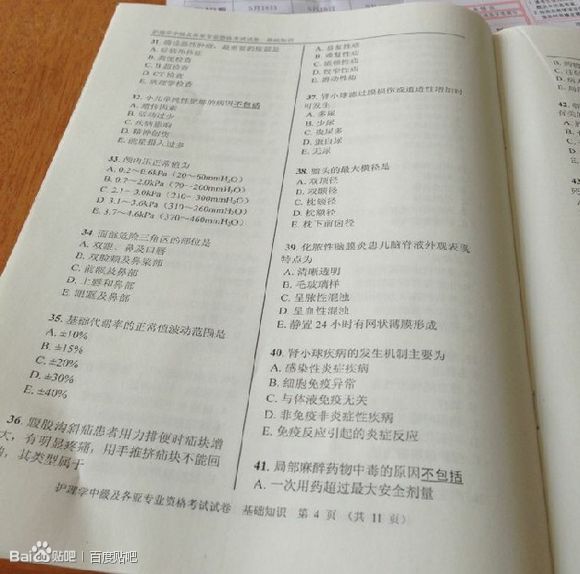 5月28日
护理学中级及各亚专业资格考试试卷 基础知识
A. 症状和体征
B. 粪便检查
C. B超检查
D. CT检查
E. 病理学检查
32. 小儿单纯性肥胖的病因不包括
A. 遗传因素
B. 活动过少
C. 疾病影响
D. 精神创伤
E. 能量摄入过多
33. 颅内压正常值为
B. 0.7~2.0kPa（70~200mmH₂O）
34. 面部危险三角区的部位是
A. 双眼、鼻及口唇
B. 双脸颊及鼻梁部
C. 前额及鼻部
D. 上唇和鼻部
E. 眼眶及鼻部
35. 基础代谢率的正常值波动范围是
A. ±10%
B. ±15%
C. ±20%
D. ±30%
E. ±40%
36. 腹股沟斜疝患者用力排便时疝块增
大，有明显疼痛，用手推挤疝块不能回
纳，其类型属于
A. 易复性疝
B. 难复性疝
C. 嵌顿性疝
D. 绞窄性疝
E. 滑动性疝
37. 肾小球滤过膜损伤或通透性增加时
可发生
A. 多尿
B. 少尿
C. 夜尿多
D. 蛋白尿
E. 无尿
38. 胎头的最大横径是
A. 双顶径
B. 双颞径
C. 枕颏径
D. 枕额径
E. 枕下前囟径
39. 化脓性脑膜炎患儿脑脊液外观表现
特点为
A. 清晰透明
B. 毛玻璃样
C. 呈脓性混浊
D. 呈血性混浊
E. 静置24小时有网状薄膜形成
40. 肾小球疾病的发生机制主要为
A. 感染性炎症疾病
B. 细胞免疫异常
C. 与体液免疫无关
D. 非免疫非炎症性疾病
E. 免疫反应引起的炎症反应
41. 局部麻醉药物中毒的原因不包括
A. 一次用药超过最大安全剂量
护理学中级及各亚专业资格考试试卷 基础知识 第 4 页 （共 11 页）
Bai贴吧 | 百度贴吧